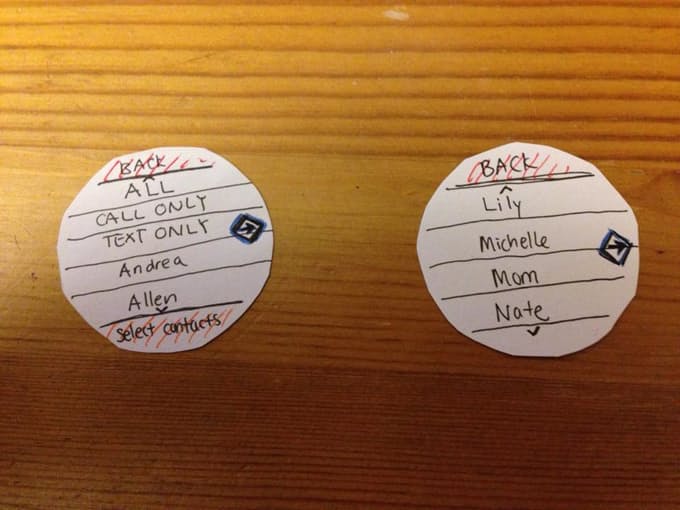 BACK
ALL
CALL ONLY
TEXT ONLY
Andrea
Allen
Select contacts
BACK
Lily
Michelle
Mom
Nate